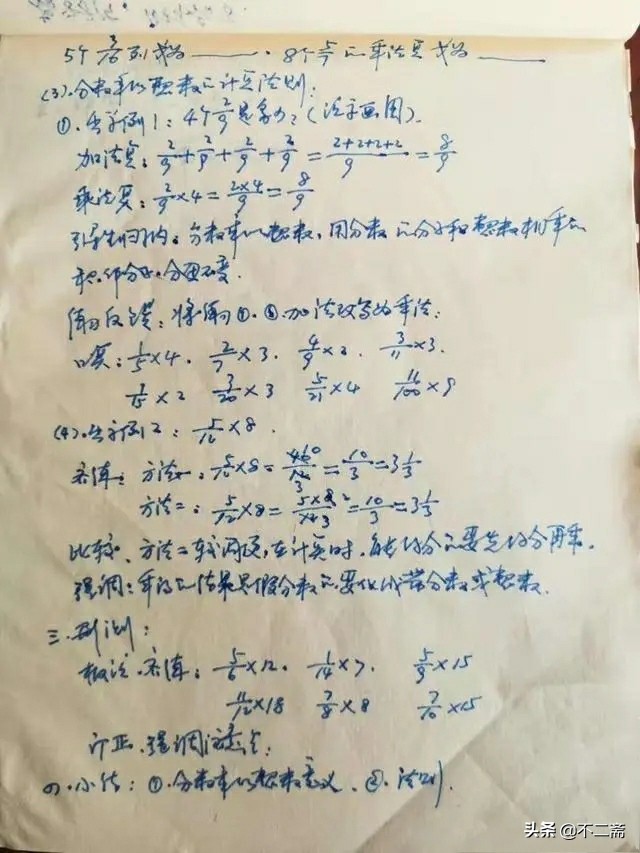 5个 列式为______. 8个 的乘法算式为______
(3).分数乘以整数的计算法则:
①.出示例1: 4个2/9是多少?(演示画图).
加法算: 2/9+2/9+2/9+2/9=(2+2+2+2)/9=8/9
乘法算: 2/9×4=(2×4)/9=8/9
引导生归纳: 分数乘以整数,用分数的分子和整数相乘的
积作分子.分母不变.
将 加法改写为乘法:
口算: 1/5×4. 2/7×3. 4/9×2. 3/11×3.
×2 3/20×3 5/21×4 11/100×9
(4).出示例2: 5/12×8.
方法一: 5/12×8=40/12=10/3=3 1/3
方法二: 5/12×8=(5×8)/12=10/3=3 1/3
比较. 方法二较 在计算时,能约分的要先约分再乘.
强调: 乘得的结果是假分数的要化成带分数或整数.
三.
板演. 5/6×12. 1/14×7. 5/9×15
11/12×18 7/8×8 7/10×15
订正.强调注意点:
四.小结: ①.分数乘以整数意义. ②.法则.
头条 @不二斋